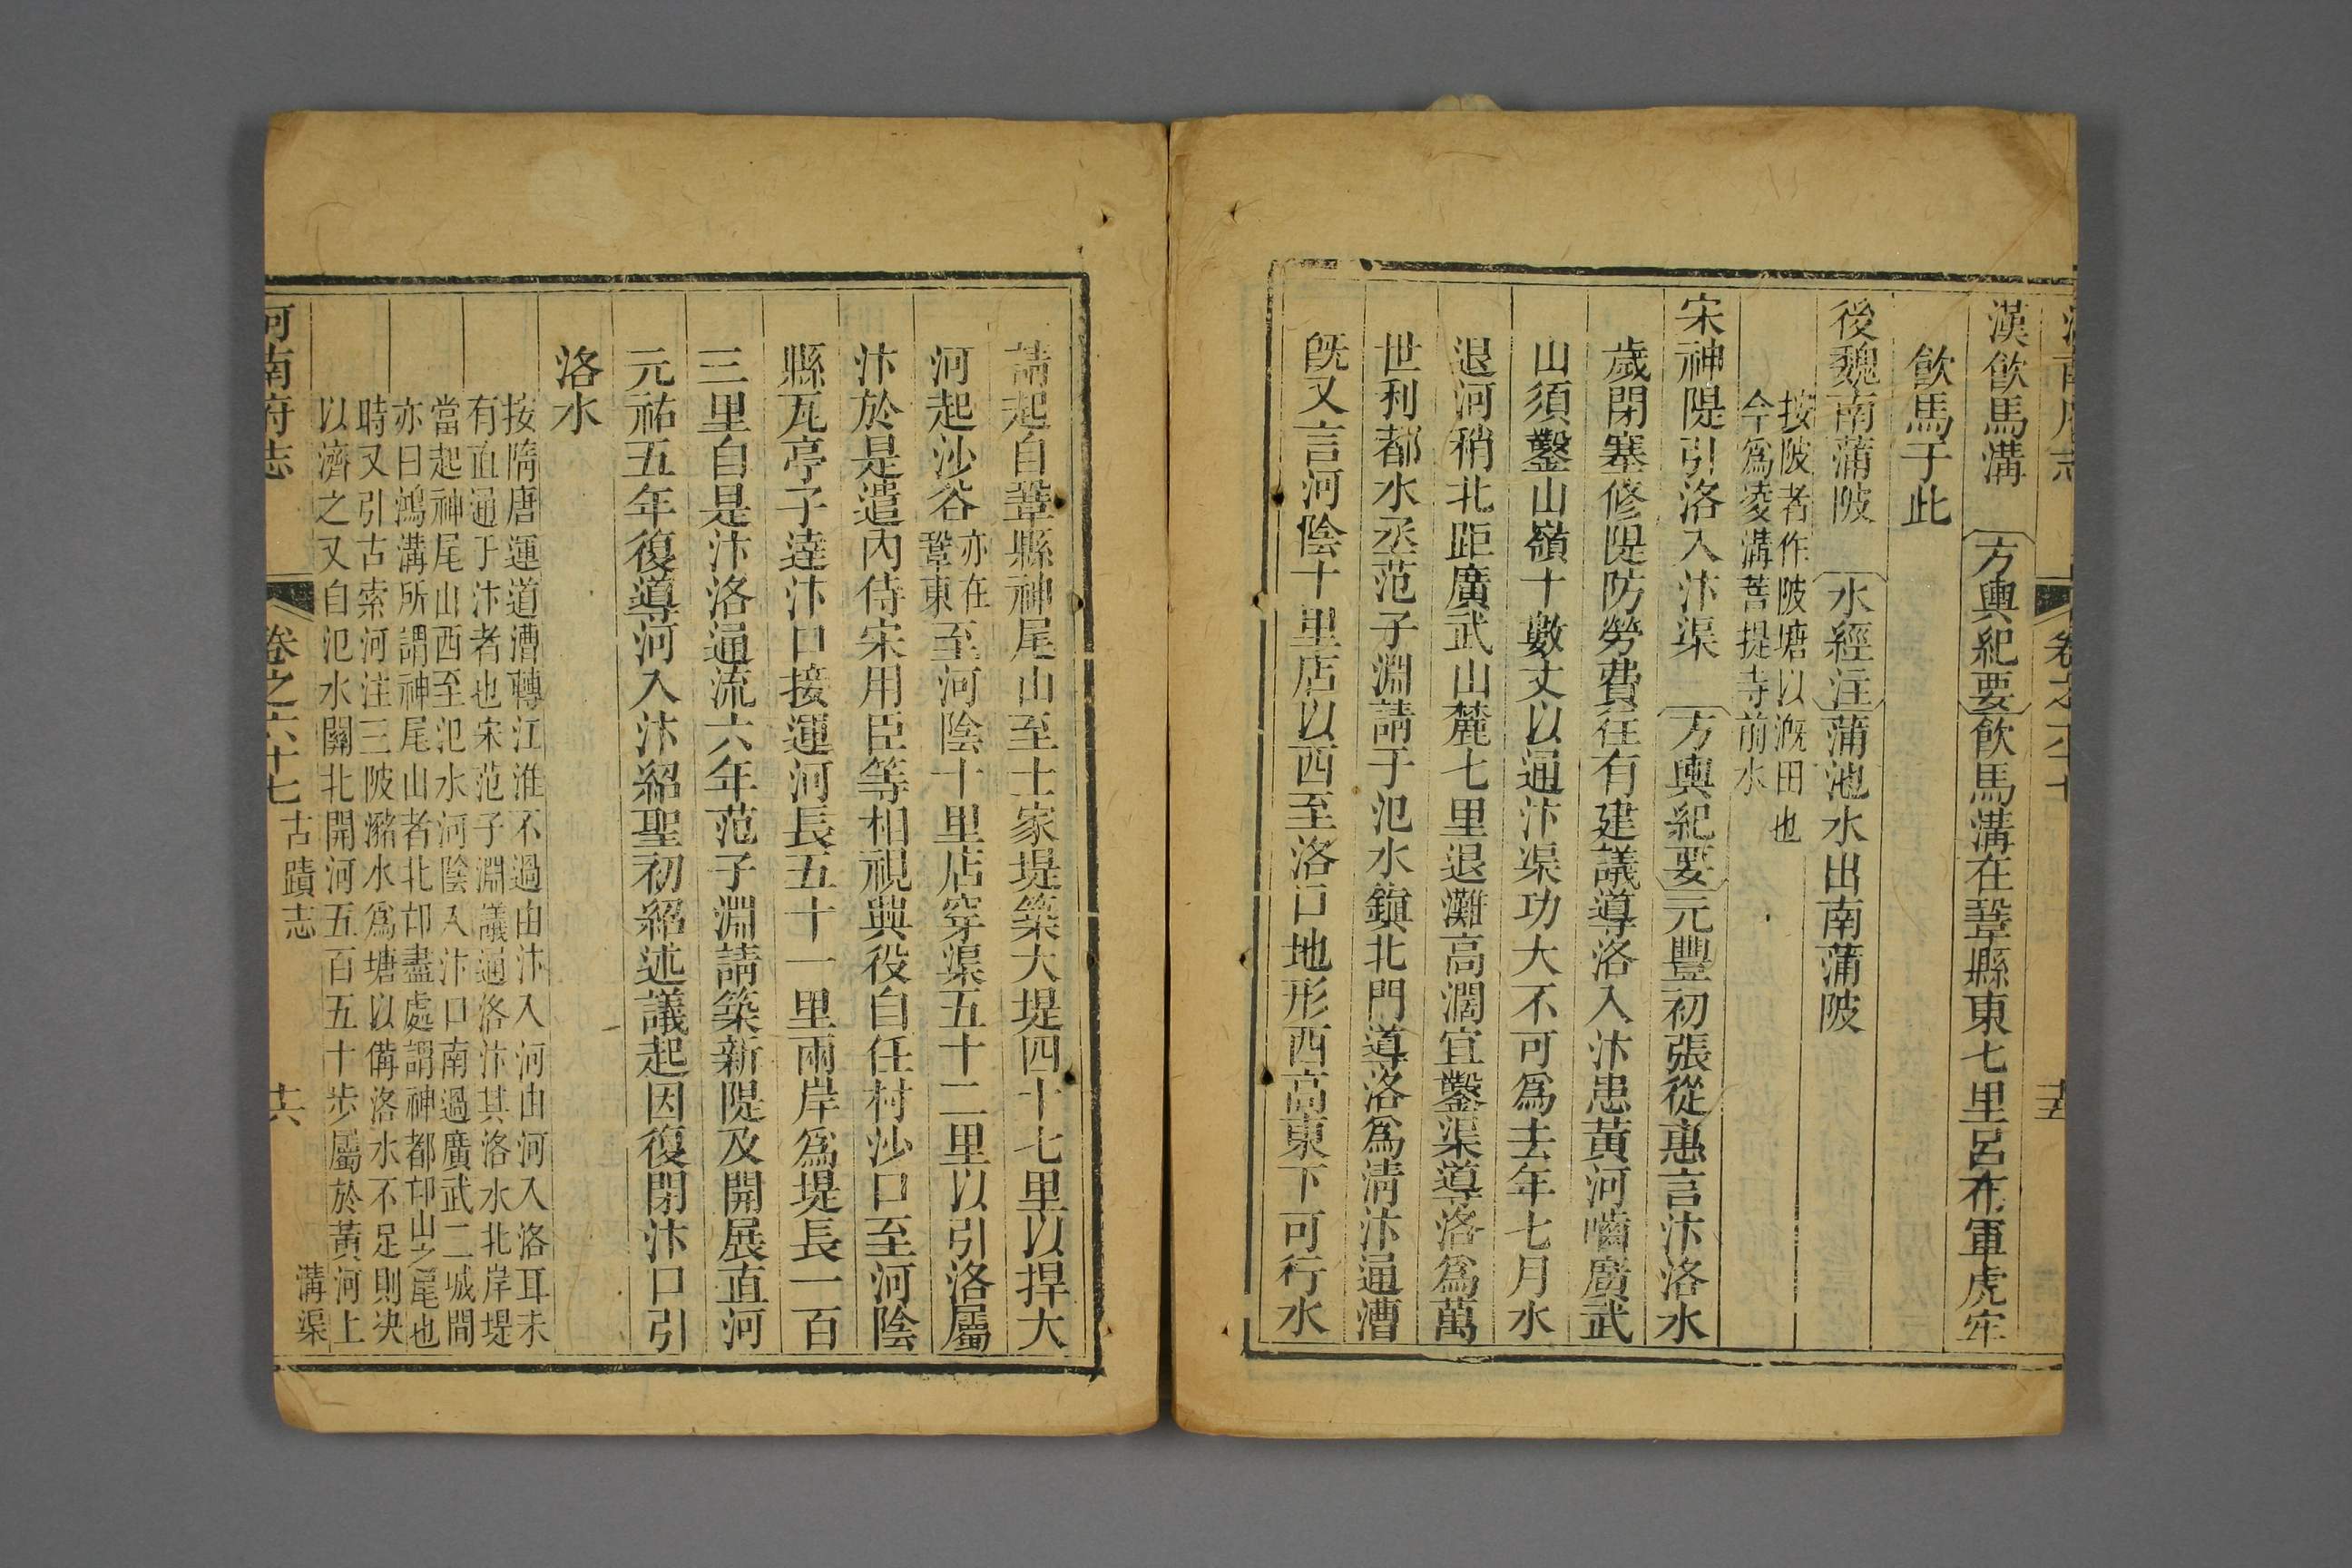 河南府志 卷之六十七 十五
漢飲馬溝 方輿紀要飲馬溝在鞏縣東七里呂布軍虎牢
飲馬于此
後魏南蒲陂 水經注蒲池水出南蒲陂
按陂者作陂塘以漑田也
今爲凌溝菩提寺前水
宋神隄引洛入汴渠 方輿紀要元豐初張從惠言汴洛水
歲閉塞修隄防勞費往有建議導洛入汴患黃河嚙廣武
山須鑿山嶺十數丈以通汴渠功大不可爲去年七月水
退河稍北距廣武山麓七里退灘高濶宜鑿渠導洛爲萬
世利都水丞范子淵請于氾水鎭北門導洛爲淸汴通漕
旣又言河陰十里店以西至洛口地形西高東下可行水
請起自鞏縣神尾山至士家堤築大堤四十七里以捍大
河起沙谷亦在鞏東至河陰十里店穿渠五十二里以引洛屬
汴於是遣內侍宋用臣等相視興役自任村沙口至河陰
縣瓦亭子達汴口接運河長五十一里兩岸爲堤長一百
三里自是汴洛通流六年范子淵請築新隄及開展直河
元祐五年復導河入汴紹聖初紹述議起因復閉汴口引
洛水
按隋唐運道漕轉江淮不過由汴入河由河入洛耳未
有直通于汴者也宋范子淵議通洛汴其洛水北岸堤
當起神尾山西至氾水河陰入汴口南過廣武二城間
亦曰鴻溝所謂神尾山者北邙盡處謂神都邙山之尾也
時又引古索河注三陂瀦水爲塘以備洛水不足則決
以濟之又自氾水關北開河五百五十步屬於黃河上
河南府志 卷之六十七 古蹟志 溝渠 十六